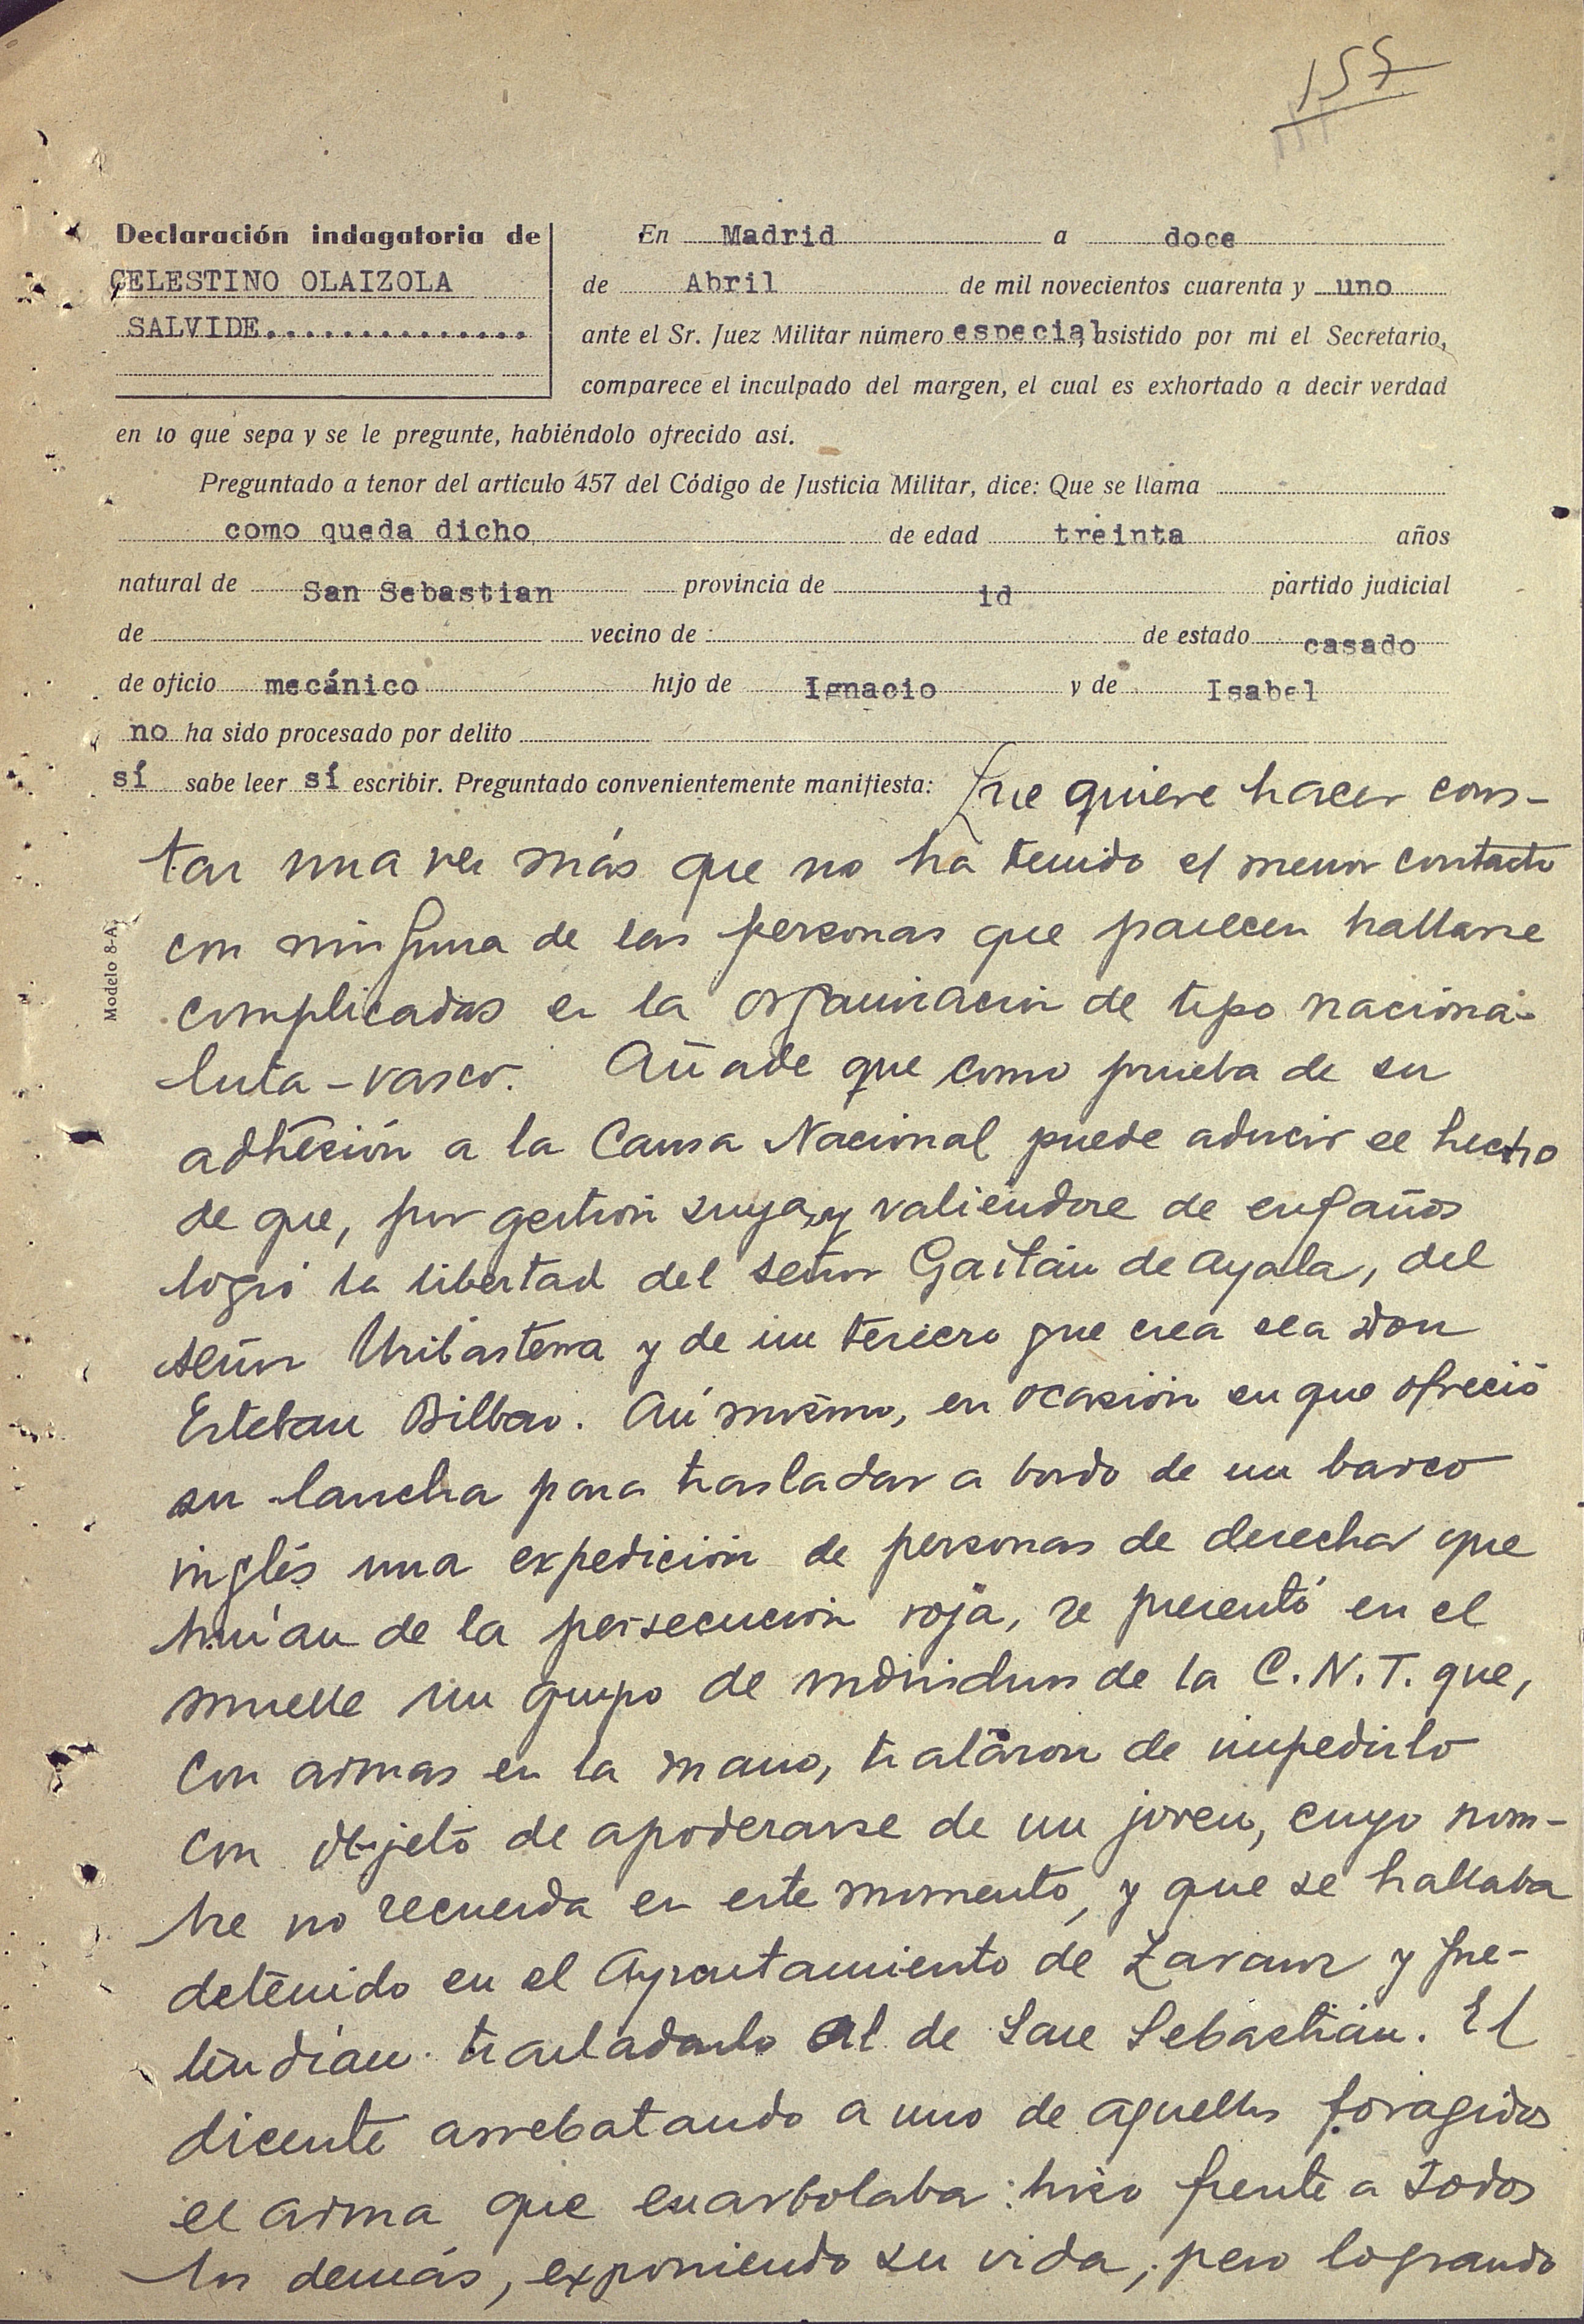 155
Declaración indagatoria de
CELESTINO OLAIZOLA
SALVIDE..............
En Madrid a doce
de Abril de mil novecientos cuarenta y uno
ante el Sr. Juez Militar número especial, asistido por mi el Secretario,
comparece el inculpado del margen, el cual es exhortado a decir verdad
en lo que sepa y se le pregunte, habiéndolo ofrecido así.
Preguntado a tenor del artículo 457 del Código de Justicia Militar, dice: Que se llama
como queda dicho de edad treinta años
natural de San Sebastian provincia de id partido judicial
de vecino de de estado casado
de oficio mecánico hijo de Ignacio y de Isabel
no ha sido procesado por delito
sí sabe leer sí escribir. Preguntado convenientemente manifiesta: Que quiere hacer cons-
tar una vez más que no ha tenido el menor contacto
con ninguna de las personas que parecen hallarse
complicadas en la organización de tipo naciona-
lista-vasco. Añade que como prueba de su
adhesión a la Causa Nacional puede aducir el hecho
de que, por gestión suya, y valiéndose de engaños
logró la libertad del señor Gaitán de Ayala, del
señor Uribasterra y de un tercero que crea sea don
Esteban Bilbao. Así mismo, en ocasión en que ofreció
su lancha para trasladar a bordo de un barco
inglés una expedición de personas de derechas que
huían de la persecución roja, se presentó en el
muelle un grupo de individuos de la C.N.T. que,
con armas en la mano, trataron de impedirlo
con objeto de apoderarse de un joven, cuyo nom-
bre no recuerda en este momento, y que se hallaba
detenido en el Ayuntamiento de Zarauz y pre-
tendían trasladarlo al de San Sebastián. El
dicente arrebatando a uno de aquellos foragidos
el arma que enarbolaba hizo frente a todos
los demás, exponiendo su vida, pero logrando
Modelo 8-A.